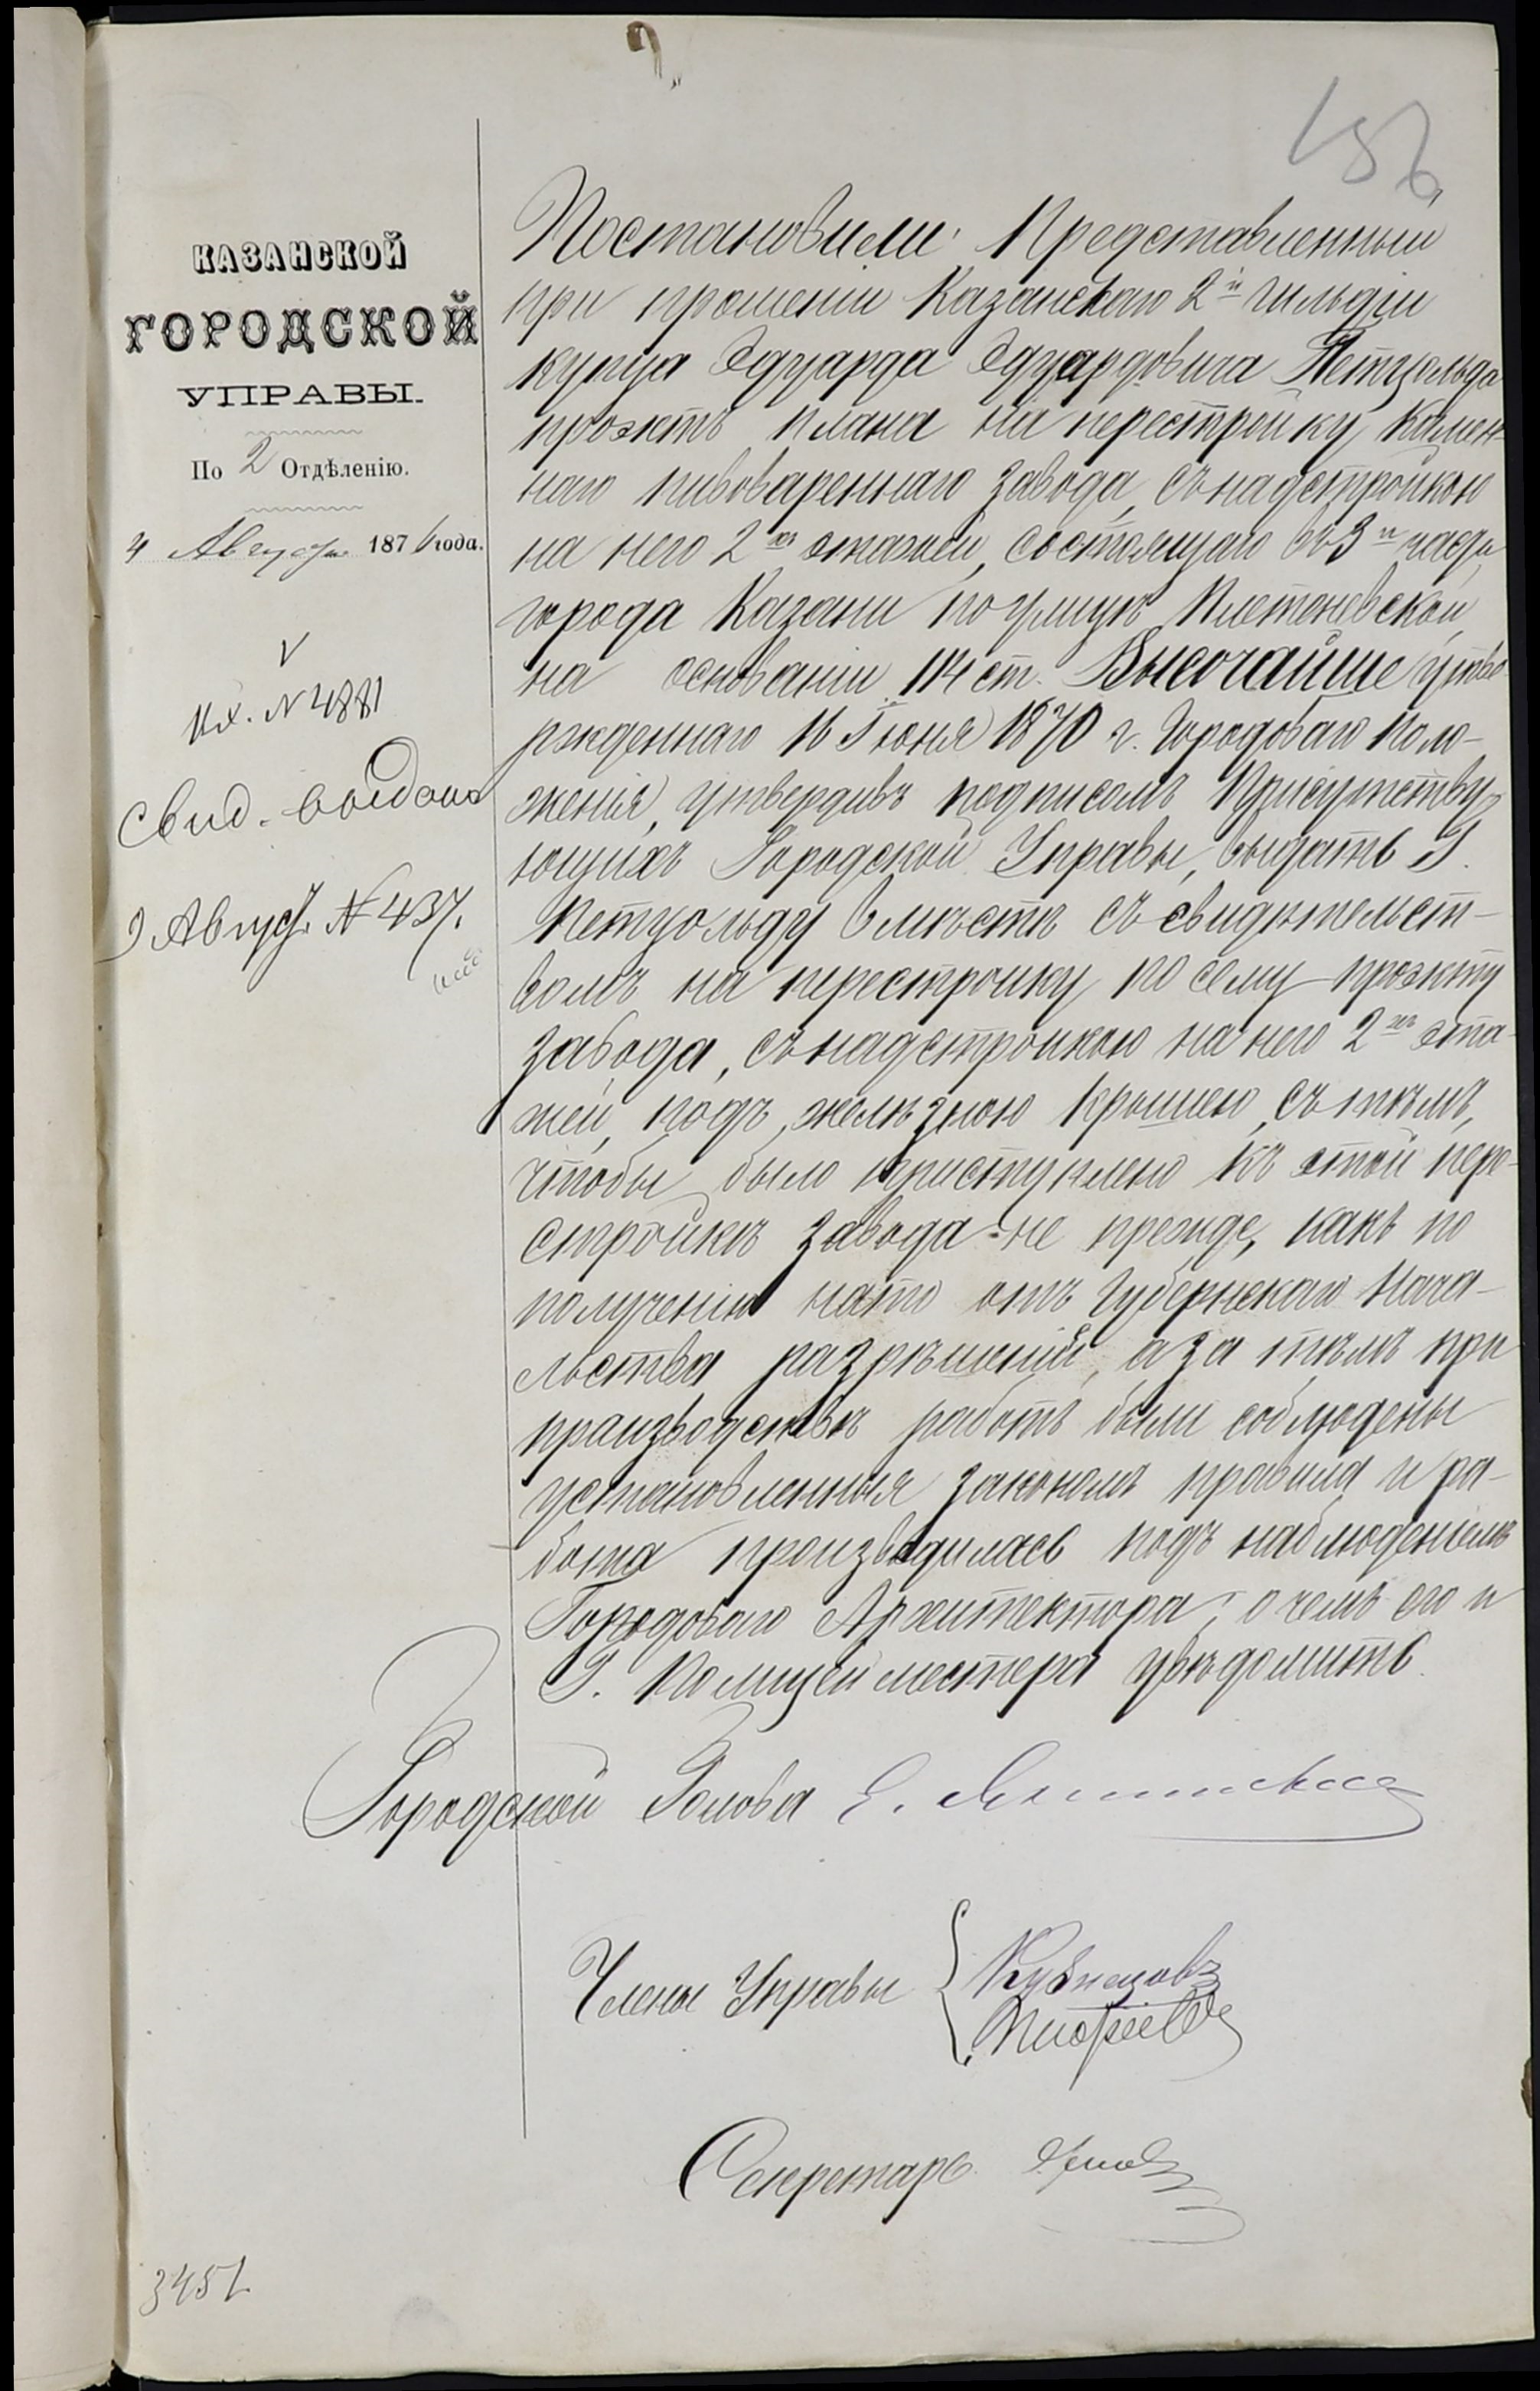 156
КАЗАНСКОЙ
ГОРОДСКОЙ
УПРАВЫ.
По 2 Отдѣленію.
4 Августа 1876 года.
Вх. N 4881
Свид. выдано
9 Август. N 437.
Постановили: Представленный
при прошеніи Казанскаго 2й гильдіи
купца Эдуарда Эдуардовича Петцольда
проэктъ плана на перестройку камен-
наго пивовареннаго завода, съ надстройкою
на него 2хъ этажей, состоящаго въ 3й части
города Казани по улицѣ Плетеневской,
на основаніи 114 ст. Высочайше утве-
ржденнаго 16 Іюня 1870 г. Городоваго Поло-
женія, утвердивъ подписомъ Присутству-
ющихъ Городской Управы, выдать Г.
Петцольду вмѣстѣ съ свидѣтельст-
вомъ на перестройку по сему проэкту
завода, съ надстройкою на него 2хъ эта-
жей, подъ желѣзною крышею, съ тѣмъ,
чтобы было приступлено къ этой пере-
стройкѣ завода не прежде, какъ по
полученіи на то отъ Губернскаго Нача-
льства разрѣшеній, а за тѣмъ при
производствѣ работъ были соблюдены
установленныя закономъ правила и ра-
бота производилась подъ наблюденіемъ
Городоваго Архитектора, о чемъ его и
Г. Полицеймейстера увѣдомить.
Городской Голова Е.
Члены Управы { Кузнецовъ
Секретарь
3451